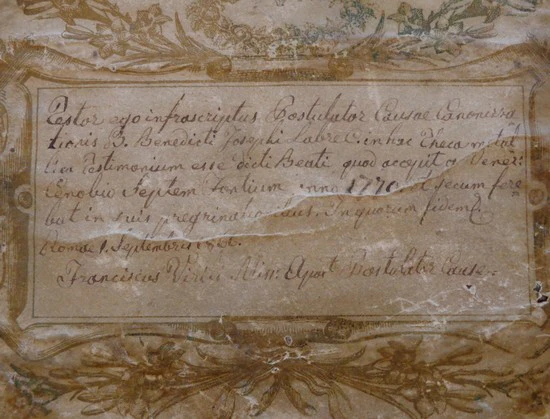 Testor ego infrascriptus Postulator Causae Canoniza
tionis B. Benedicti Josephi Labre C. in hac Theca metal
lica Testimonium esse dicti Beati quod accepit a Vener:
Cenobio Septem Fontium anno 1770 et secum fere
bat in suis peregrinationibus. In quorum fidem &.
Romae 1. Septembris
Franciscus Virili Min: Apost Postulator Causae